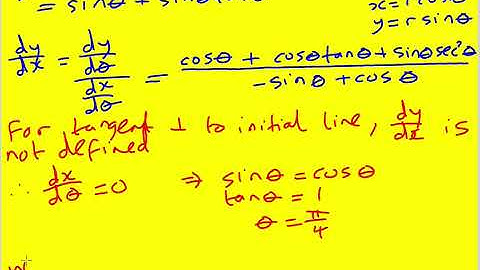 = sinθ + sinθtanθ
x = rcosθ
y = r sinθ
dy/dx = (dy/dθ)/(dx/dθ) = (cosθ + cosθtanθ + sinθsec²θ)/(-sinθ + cosθ)
For tangent ⊥ to initial line, dy/dx is
not defined
∴ dx/dθ = 0 ⇒ sinθ = cosθ
tanθ = 1
θ = π/4